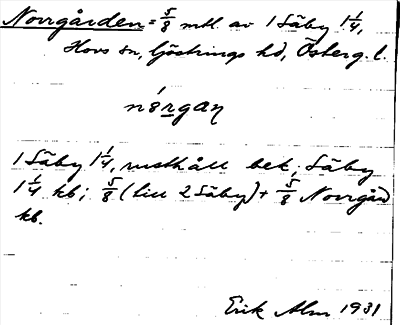 Norrgården = 5/8 mtl. av 1 Säby 1 1/4,
Hovs sn, Göstrings hd, Österg. l.
nórgaɳ
1 Säby 1 1/4, rusthåll bet; Säby
1 1/4 kb; 5/8 (till 2 Säby) + 5/8 Norrgård
kb.
Erik Alm 1931